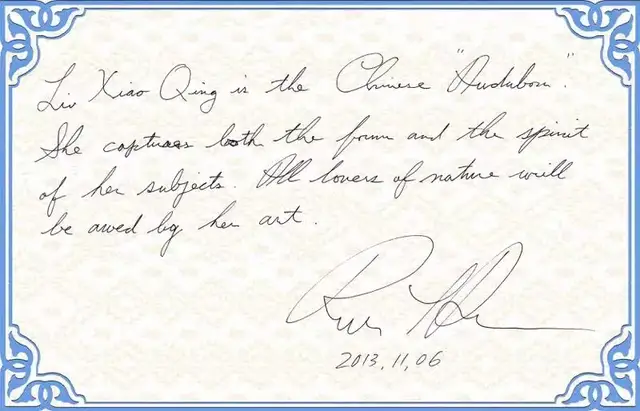 Liu Xiao Qing is the Chinese "Audubon".
She captures both the form and the spirit
of her subjects. All lovers of nature will
be awed by her art.
2013,11,06